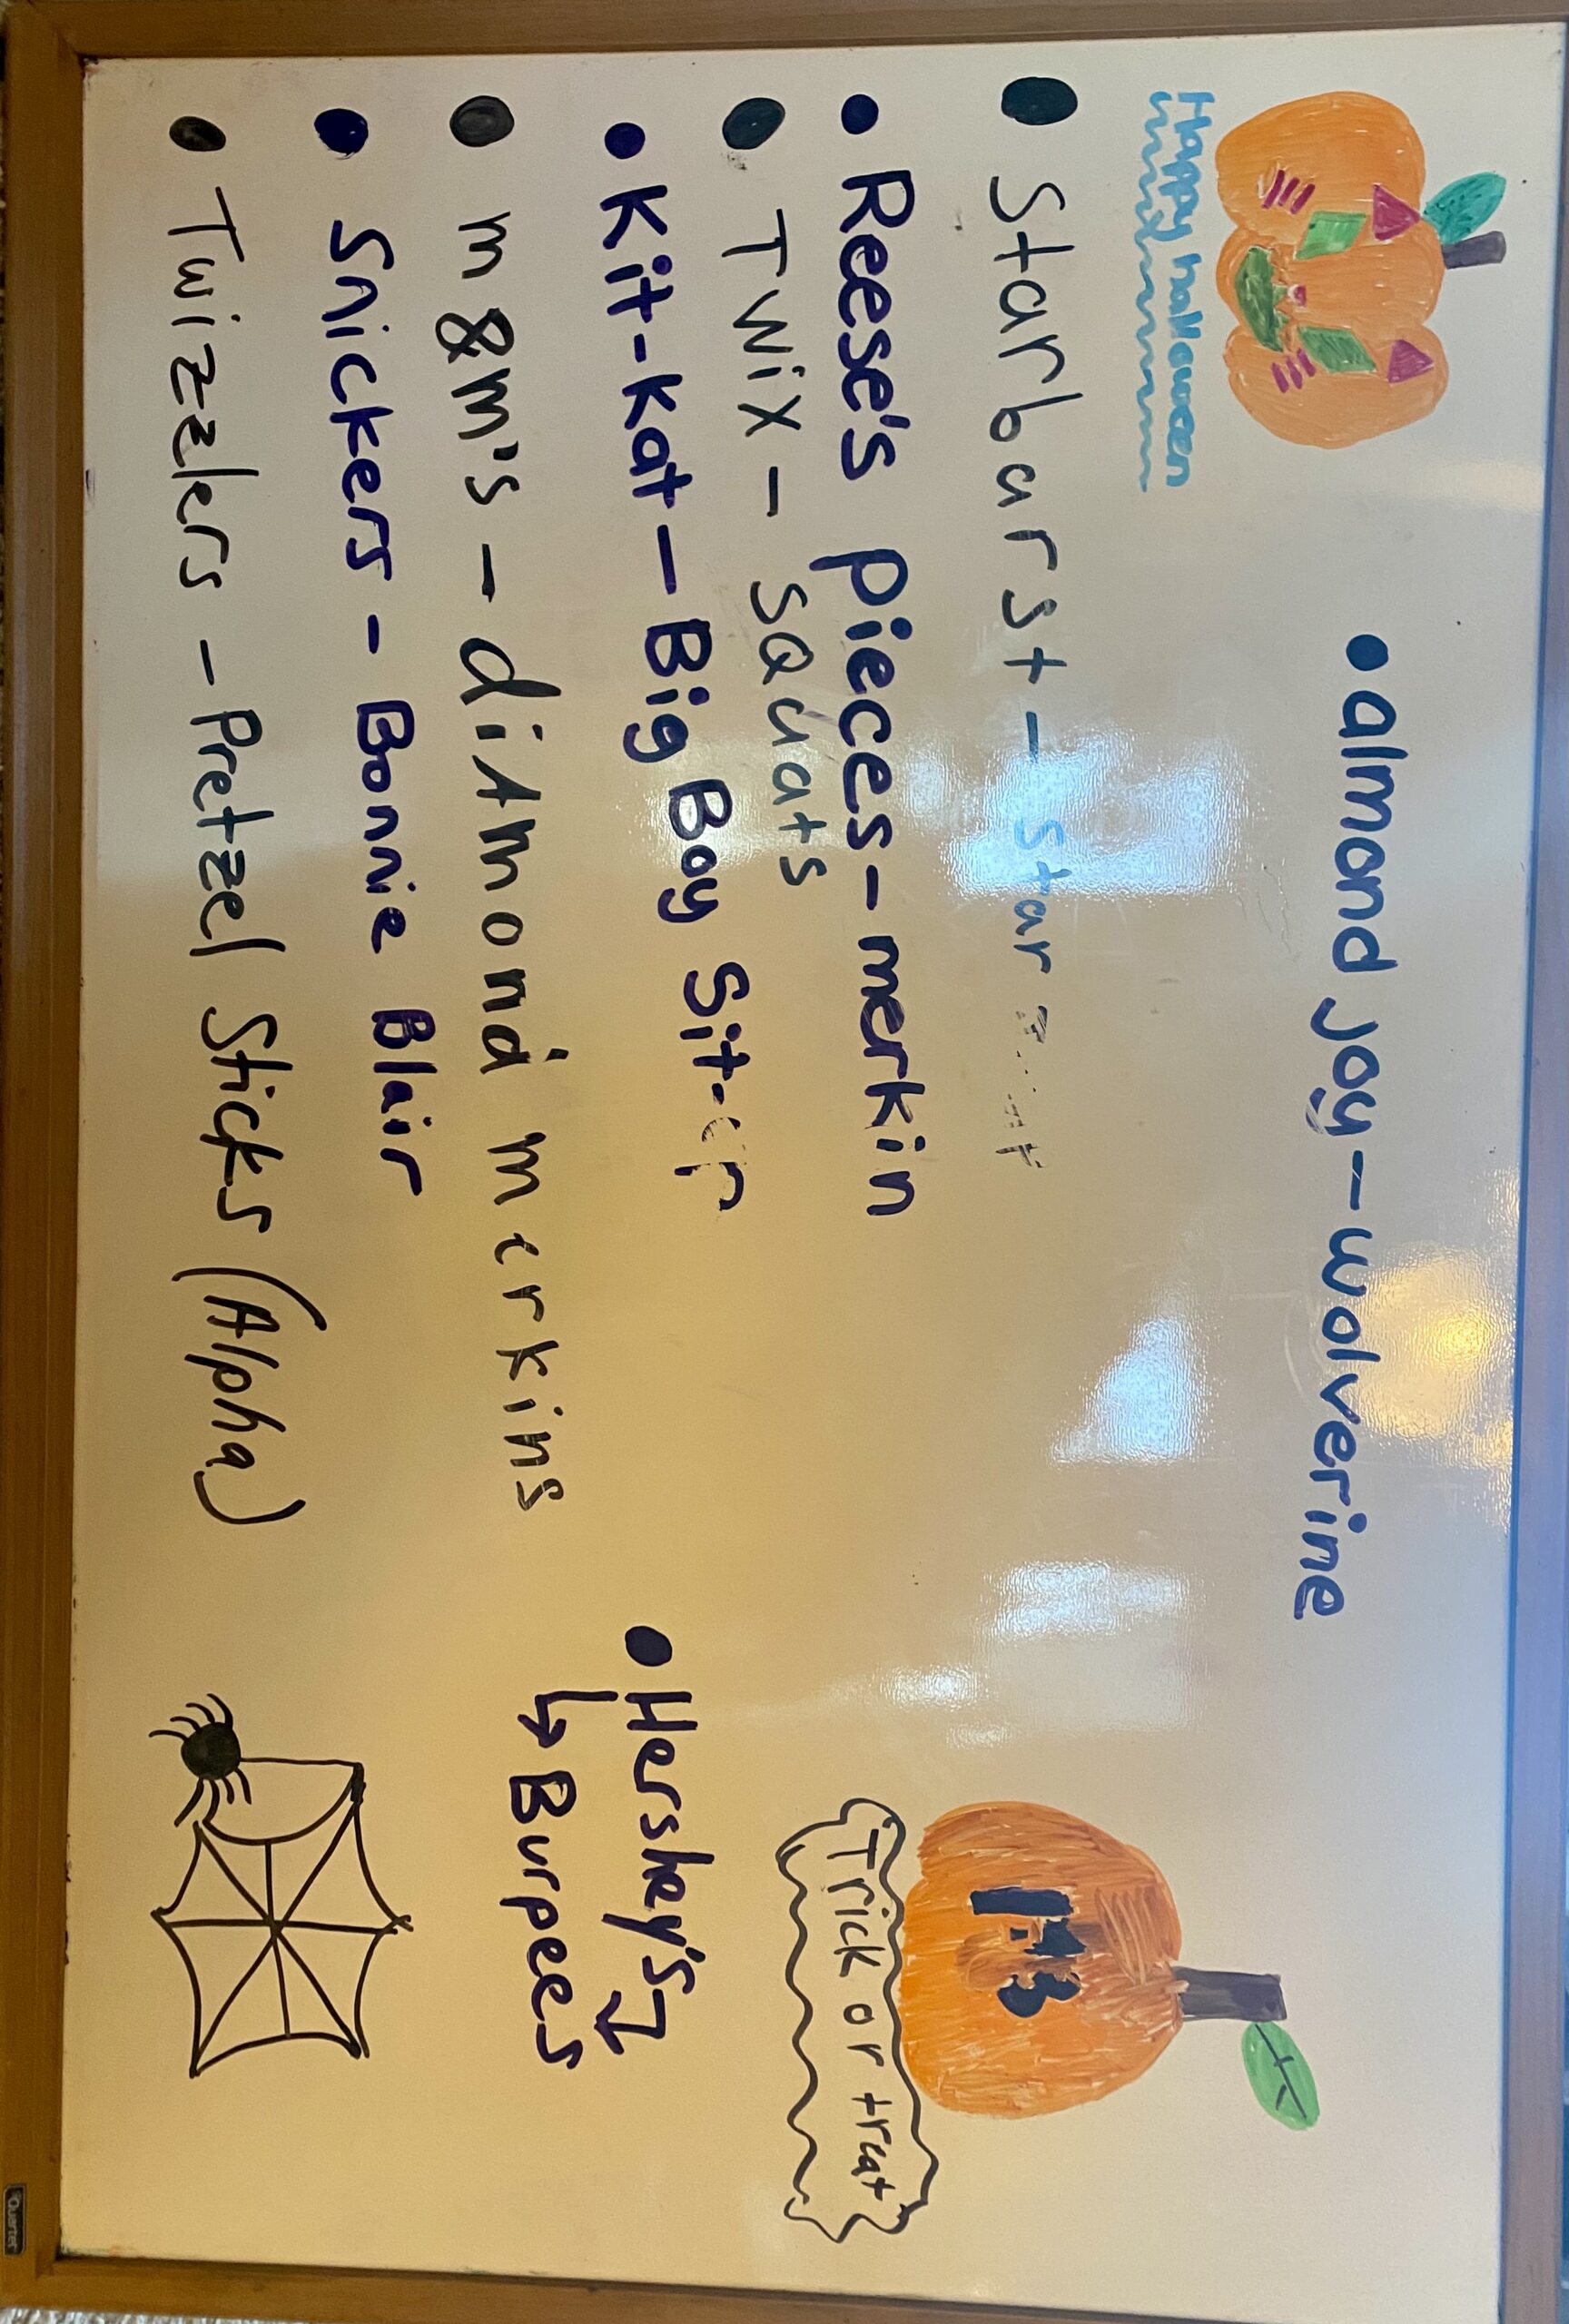 Happy halloween
• almond joy - wolverine
• Starburst - star
• Reese's pieces - merkin
• Twix - squats
• Kit-Kat - Big Boy Sit-up
• m&m's - diamond merkins
• Snickers - Bonnie Blair
• Twizzlers - Pretzel Sticks (Alpha)
Trick or treat
• Hershey's
↳ Burpees
Quartet